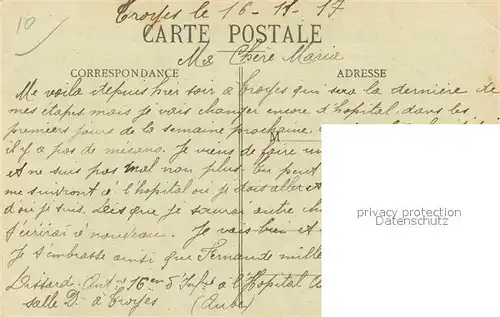 10
Troyes le 16-11-17
CARTE POSTALE
Ma Chère Marie
CORRESPONDANCE
ADRESSE
Me voila depuis hier soir à Troyes qui sera la dernière de
mes étapes mais je vais changer encore d'hopital dans les
premiers jours de la semaine prochaine,
il y a pas de mécano. Je viens de faire un
M
et ne suis pas mal non plus. On peut
me suivront à l'hopital ou je dois aller et
d'ou je suis. Dès que je saurai autre ch
t'ecrirai à nouveau. Je vais bien et
Je t'embrasse ainsi que Fernande mille
Dissard Ant. 16em d'Infie à l'Hopital
salle D. à Troyes (Aube)
privacy protection
Datenschutz